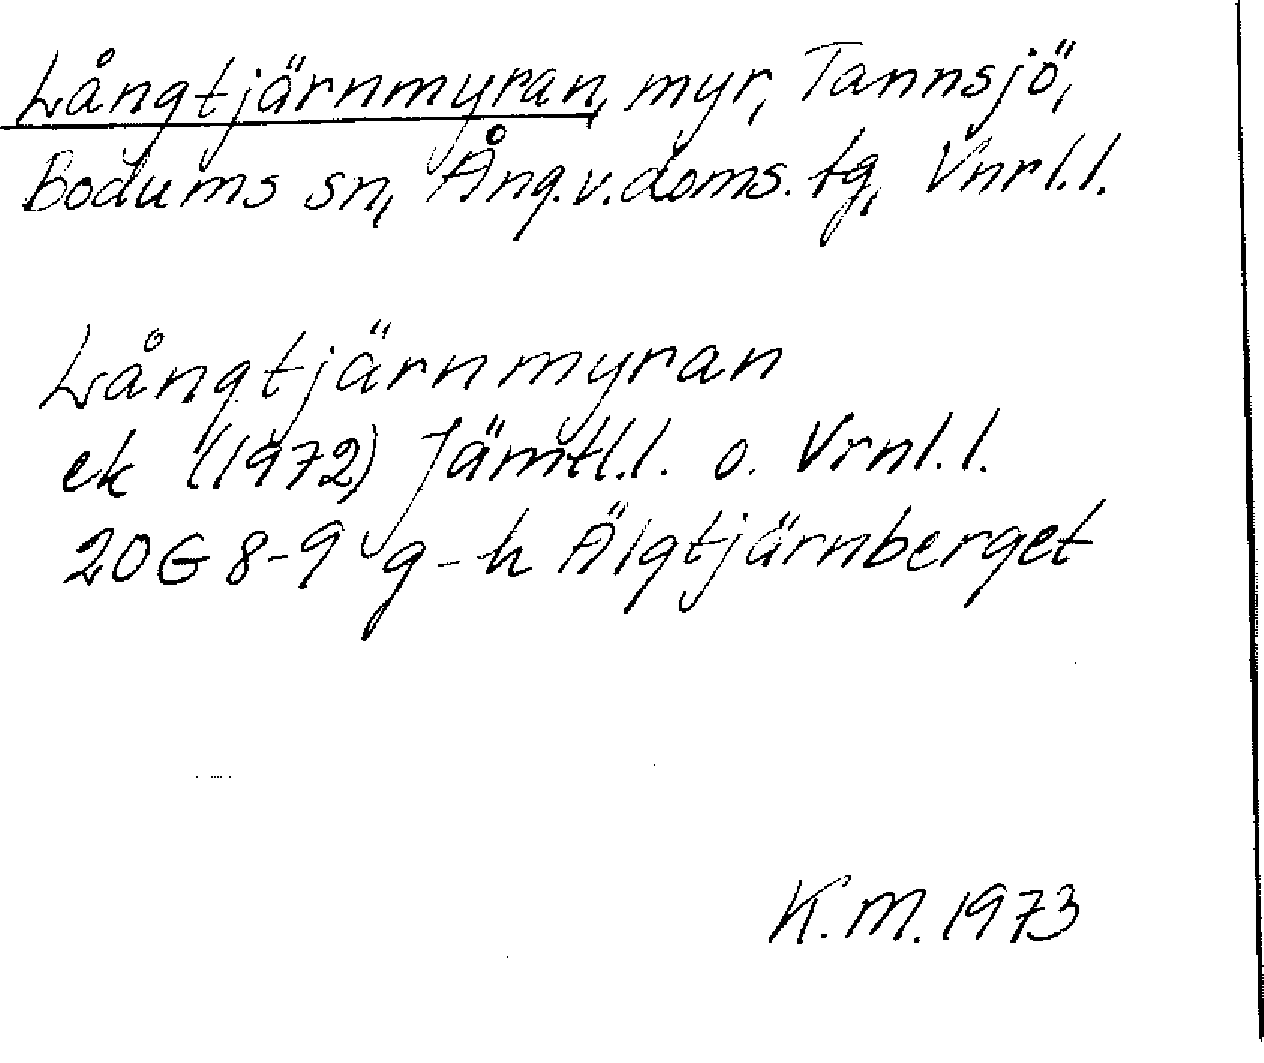 Långtjärnmyran, myr, Tannsjö,
Bodums sn, Ång.v.doms. tg, Vnrl.l.
Långtjärnmyran
ek (1972) Jämtl.l. o. Vrnl.l.
20G 8-9 g-h Älgtjärnberget
K.M. 1973